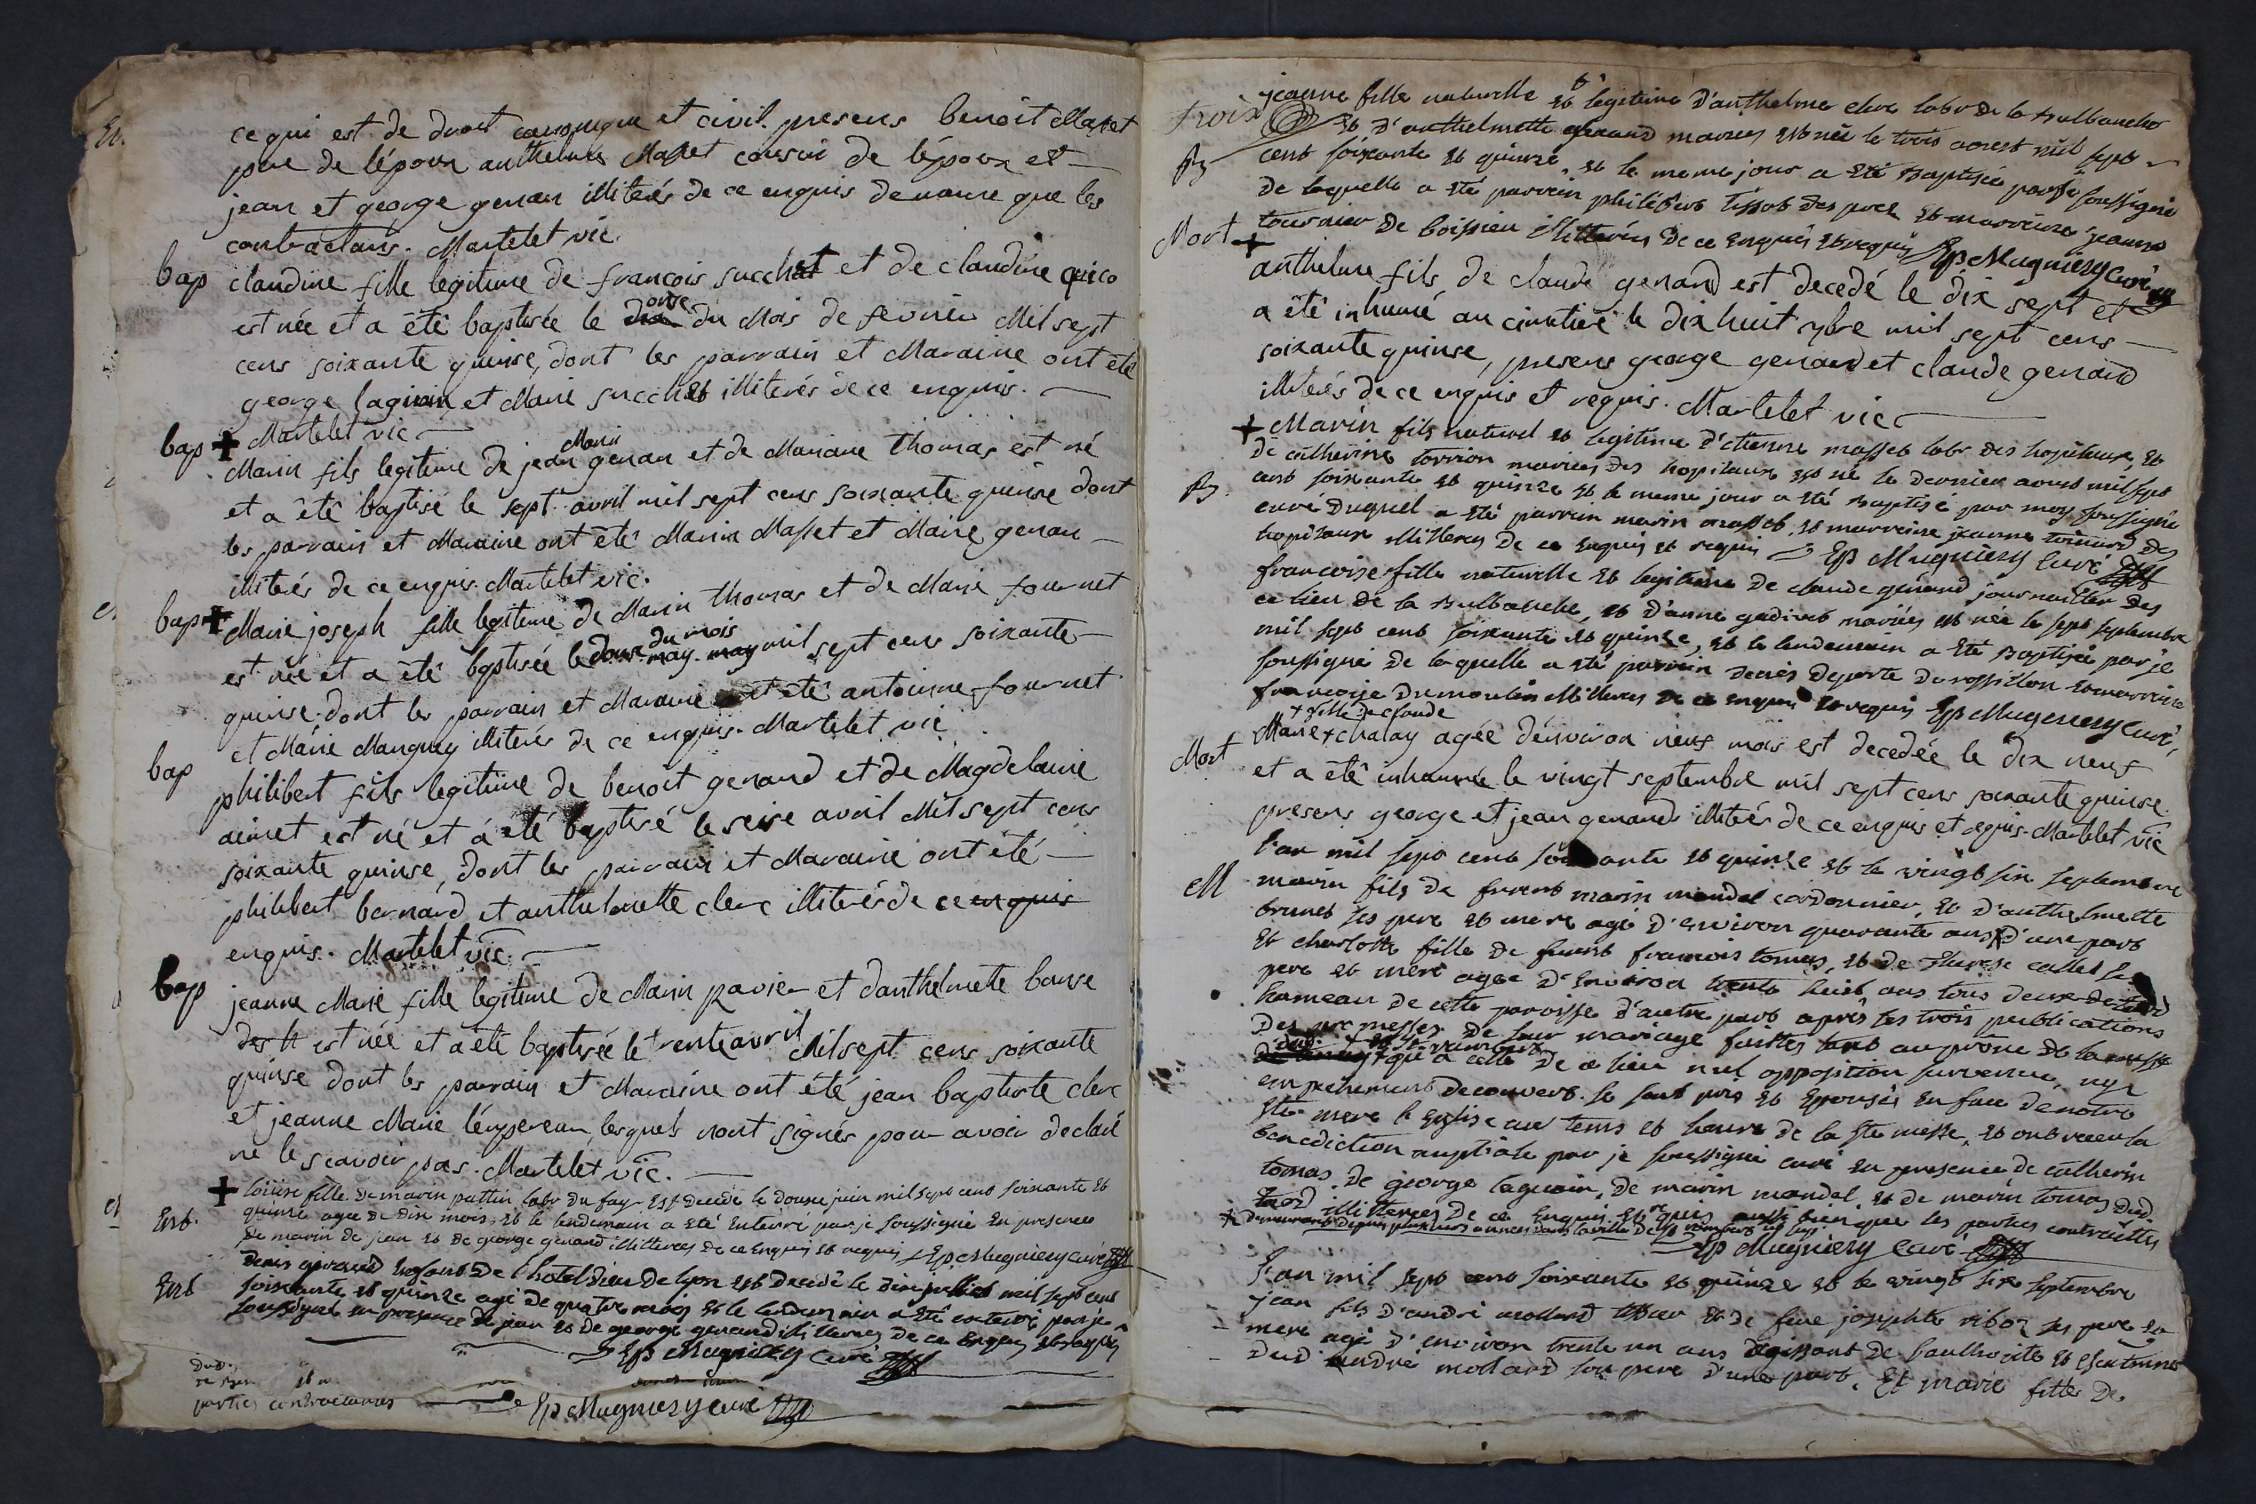 ce qui est de droit canonique et civil. presens benoit Masset
pere de lépoux anthelme Masset cousin de lépoux et
jean et george genan illiterés de ce enquis de meme que les
contractans. Martelet vic.
bap claudine fille legitime de francois succhet et de claudine
est née et a êtê baptisée le onse du Mois de fevrier Mil sept
cens soixante quinse, dont les parrain et Maraine ont été
george laguain et Marie succhet illiterés de ce enquis.
Martelet vic
bap + Marin fils legitime de jean Marin genan et de Mariane thomas est né
et a êtê baptisé le sept avril mil sept cens soixante quinse dont
les parrain et Maraine ont êtê Marin Masset et Marie genan
illiterés de ce enquis. Martelet vic.
bap + Marie joseph fille legitime de Marin thomas et de Marie fournet
est née et a êtê baptisée le douse du mois may mil sept cens soixante
quinse dont les parrain et Maraine ont êtê antoinne fournet
et Marie Manguey illiterés de ce enquis. Martelet vic
bap philibert fils legitime de benoit genand et de Magdelaine
aimet est né et a été baptisé le seise avril Mil sept cens
soixante quinse, dont les parrain et Maraine ont été
philibert bernard et anthelmette clerc illiterés de ce enquis
enquis. Martelet vic.
bap jeanne Marie fille legitime de Marin ravier et danthelmette bonse
des h est née et a été baptisée le trente avril Mil sept cens soixante
quinse dont les parrain et Maraine ont été jean baptiste clerc
et jeanne Marie lempereur, lesquels n'ont signés pour avoir declaré
ne le scavoir pas. Martelet vic.
+ loüise fille de marin puttin labr du fay est decedé le douse juin mil sept cent soixante et
Ent. quinse agée de dix mois, et le lendemain a eté enterré par je soussigné en presence
de marin de jean et de george genand illitteres de ce enquis et requis Ep Mugniery curé
Ent denis giraud enfant de l'hotel dieu de lyon est decedé le dix juillet mil sept cent
soixante et quinze agé de quatre mois et le lendemain a été enterré par je
soussigné en presence de jean et de george genand illitteres de ce enquis et requis
Ep Mugniery curé
dud.
parties contractantes Ep Mugniery curé
jeanne fille naturelle et legitime d'anthelme clerc labr de la Balbanche
troix et d'anthelmette genand mariés est née le trois aoust mil sept
B cent soixante et quinze, et le meme jour a été Baptisée par je soussigné
de laquelle a été parrein philibert tissot des et marreine jeanne
tournier de boissieu illitterés de ce enquis et requis Ep Mugniery curé
Mort + anthelme fils de claude genand est decedé le dix sept et
a êtê inhumé au cimetiere le dix huit 7bre mil sept cens
soixante quinse, presens george genand et claude genand
illiterés de ce enquis et requis. Martelet vic
+ Marin fils naturel et legitime d'etienne masset labr des hopitaux, et
de catherine torrion mariés des hopitaux est né le dernier aoust mil sept
B. cent soixante et quinze et le meme jour a été Baptisé par moy soussigné
curé duquel a été parrein marin masset et marreine jeanne des
hopitaux illitteres de ce enquis et requis Ep Mugniery curé
francoise fille naturelle et legitime de claude genand journaillier des
ce lieu de la Balbanche, et d'anne mariés est née le sept septembre
mil sept cent soixante et quinze, et le lendemain a été Baptisée par je
soussigné de laquelle a été parrein denis deporte du rossillon et marreine
francoise dumoulin illitteres de ce enquis et requis Ep Mugniery curé,
+ fille de claude
Mort Marie + chalay agée d'environ neuf mois est decedée le dix neuf
et a êtê inhumée le vingt septembre mil sept cens soixante quinse.
presens george et jean genand illiterés de ce enquis et requis. Martelet vic
l'an mil sept cent soixante et quinze et le vingt six septembre
M marin fils de furent marin mandel cordonnier, et d'anthelmette
brunet ses pere et mere agé d'environ quarante ans d'une part
et charlotte fille de furent francois tomas, et de therese callet ses
pere et mere agée d'environ trente huit ans tous deux de
hameau de cette paroisse d'autre part après les trois publications
des promesses de leur mariage faittes tant au prône de la messe
qu'a celle de ce lieu nul opposition survenue, ny
empechement decouvert se sont pris et Epousés en face de notre
ste mere l'Eglise aux tems et heure de la ste messe, et ont receu la
benediction nuptiale par je soussigné curé en presence de catherin
tomas, de george laguain, de marin mandel et de marin tomas dud.
illitterés de ce enquis et requis aussi bien que les parties contractantes
+ demeurant depuis plusieurs années dans la ville de
Ep Mugniery curé
L'an mil sept cent soixante et quinze et le vingt six septembre
jean fils d'andré mollard tissier et de feue josephte ribos ses pere et
mere agé d'environ trente un ans agissant de l'authorité et
dud andré mollard son pere d'une part. Et marie fille de